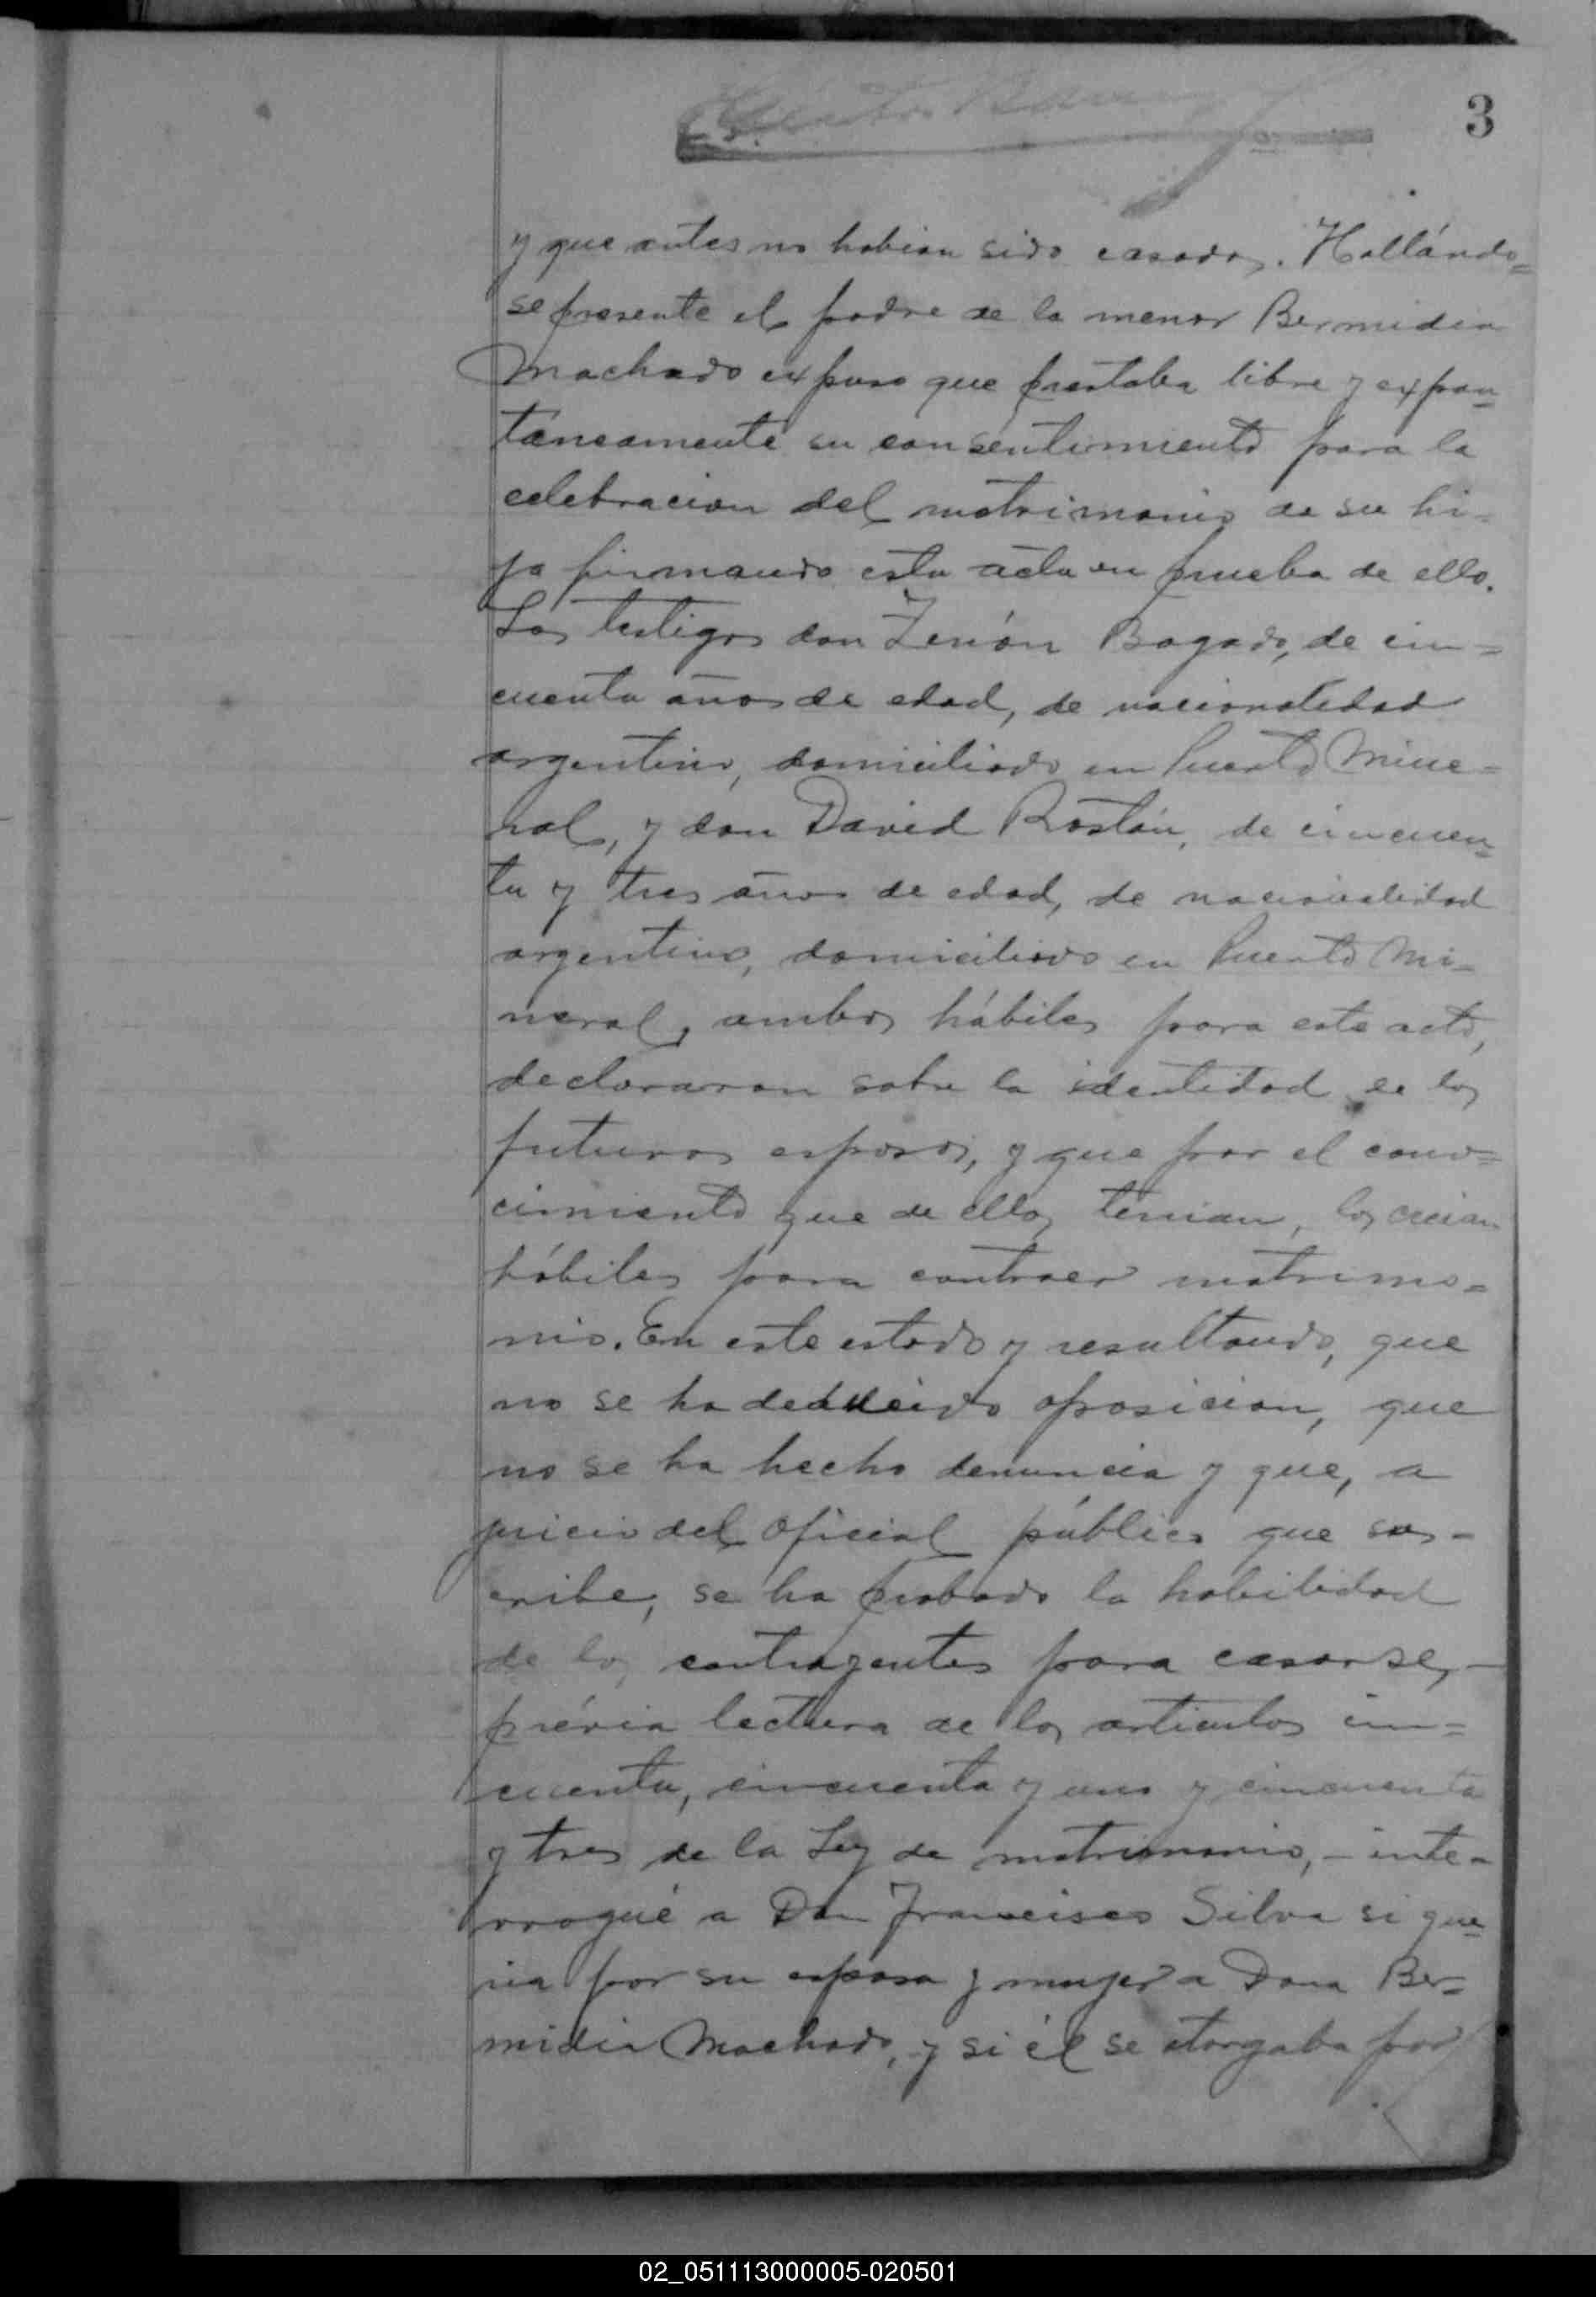 3
y que antes no habian sido casados. Hallándo=
se presente el padre de la menor Bermidia
Machado expuso que prestaba libre y expon=
táneamente su consentimiento para la
celebracion del matrimonio de su hi-
ja firmando esta acta en prueba de ello.
Los testigos don Zenón Bogado, de cin=
cuenta años de edad, de nacionalidad
argentino, domiciliado en Puerto Mine=
ral, y don David Rostán, de cincuen=
ta y tres años de edad, de nacionalidad
argentino, domiciliado en Puerto Mi-
neral, ambos hábiles para este acto,
declararon sobre la identidad de los
futuros esposos, y que por el cono=
cimiento que de ellos tenian, los creian
hábiles para contraer matrimo=
nio. En este estado y resultando, que
no se ha deducido oposicion, que
no se ha hecho denuncia y que, a
juicio del Oficial público que sus-
cribe, se ha probado la habilidad
de los contrayentes para casarse,-
prévia lectura de los articulos cin=
cuenta, cincuenta y uno y cincuenta
y tres de la Ley de matrimonio,- inte-
rrogué a Don Francisco Silva si que=
ria por su esposa y mujer a Dona Ber=
midia Machado, y si él se otorgaba por
02_051113000005-020501